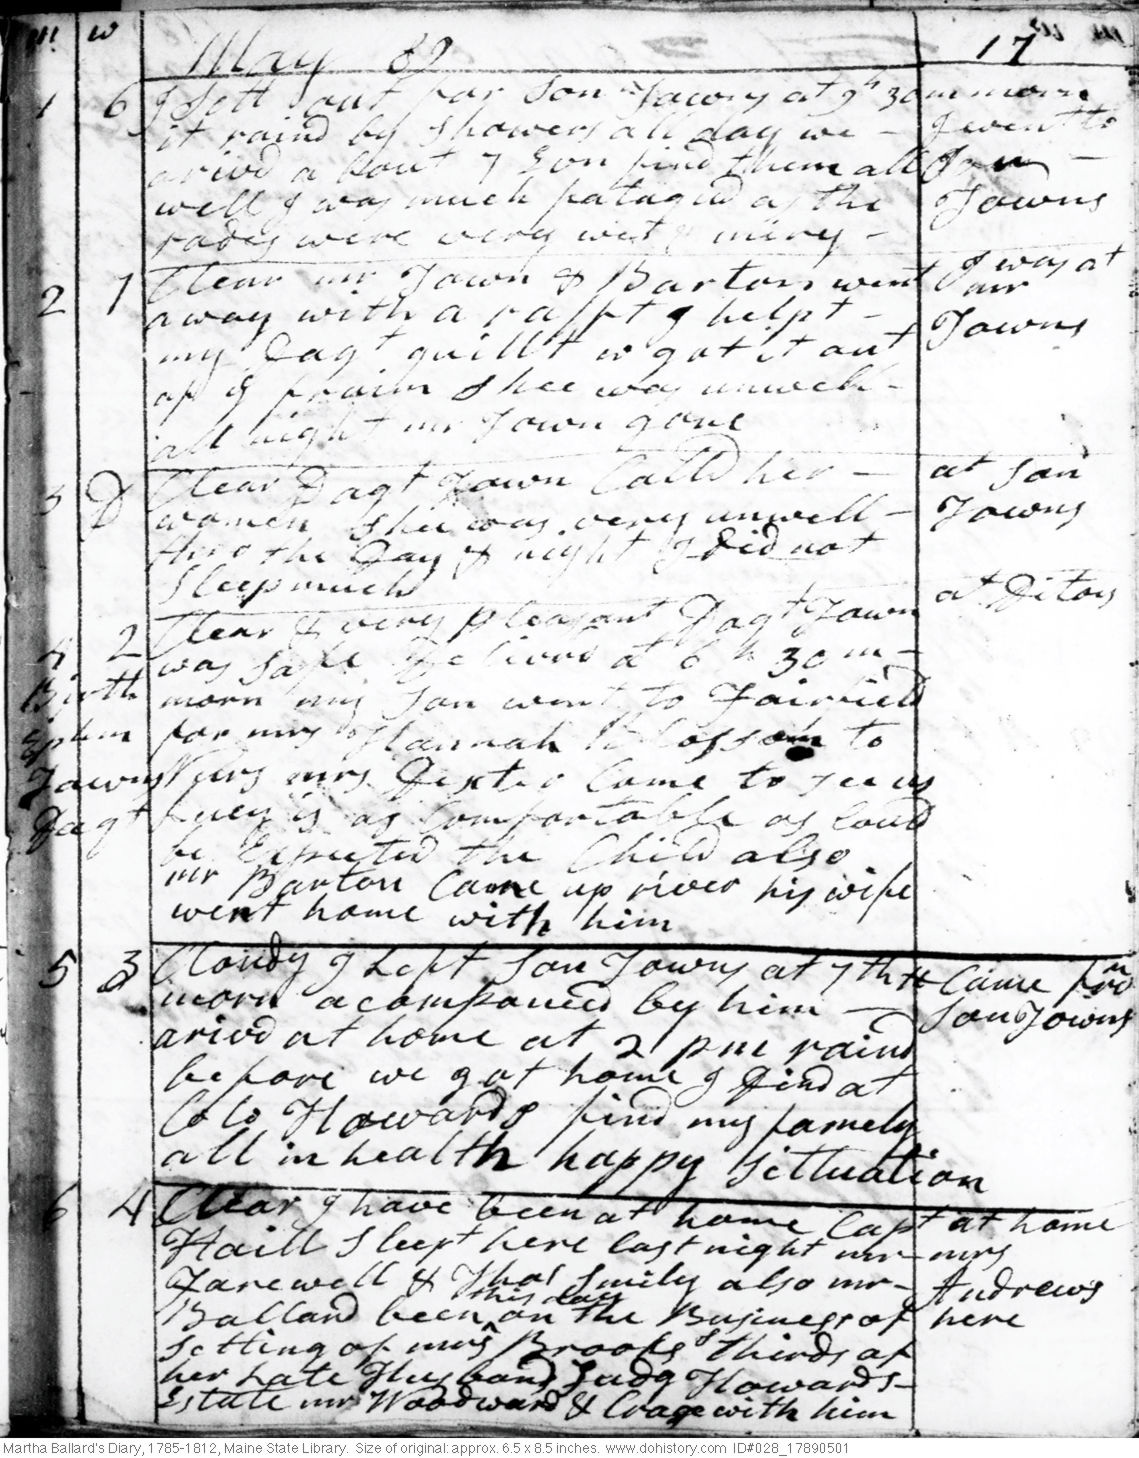 m w May 89 17
1 6 I sett out for Son Towns at 9 h 30 m morn
it raind by showers all day we – I went to
arivd about 7 Eon find them all Son –
well I was much fatagud as the Towns
rodes were very wet & miry –
2 7 Clear mr Town & Barton went I was at
away with a rafft I helpt – mr
my Dagt quillt & got it out Towns
of ye fraim shee was unwell –
all night mr Town gone
3 D Clear Dagt Town Calld her – at Son
women shee was very unwell – Towns
thro the Day & night I did not
Sleep much
at Ditos
4 2 Clear & very pleasant Dagt Town
was safe Delivrd at 6 h 30 m –
Birth morn my Son went to Fairfield
Ephm for mrs Hannah Blossom to
Towns Nurs mrs Dexter Came to see us
Dagt Lucy is as Comfortable as Coud
be Expected the Child also
mr Barton Came up river his wife
went home with him
5 3 Cloudy I Left Son Towns at 7 th H Came frm
morn acompanied by him – Son Towns
arivd at home at 2 pm raind
before we got home I dind at
Colo Howards find my famely
all in health happy Sittuation
6 4 Clear I have been at home Capt at home
Haill Sleept here last night mr – mrs
Farewell & Thos Smily also mr – Andrews
Ballard been this day on the Business of here
setting of mrs Brooks thirds of
her Late Husband Judg Howards –
Estate mr Woodward & Crage with him
Martha Ballard's Diary, 1785-1812, Maine State Library. Size of original: approx. 6.5 x 8.5 inches. www.dohistory.com ID#028_17890501